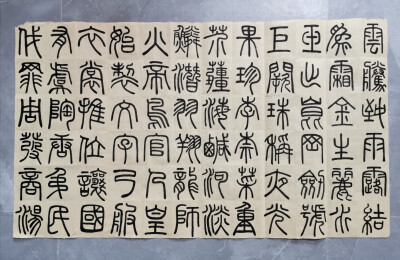 雲騰致雨露結
為霜金生麗水
玉出崑岡劍號
巨闕珠稱夜光
果珍李柰菜重
芥薑海鹹河淡
鱗潛羽翔龍師
火帝鳥官人皇
始製文字乃服
衣裳推位讓國
有虞陶唐弔民
伐罪周發商湯